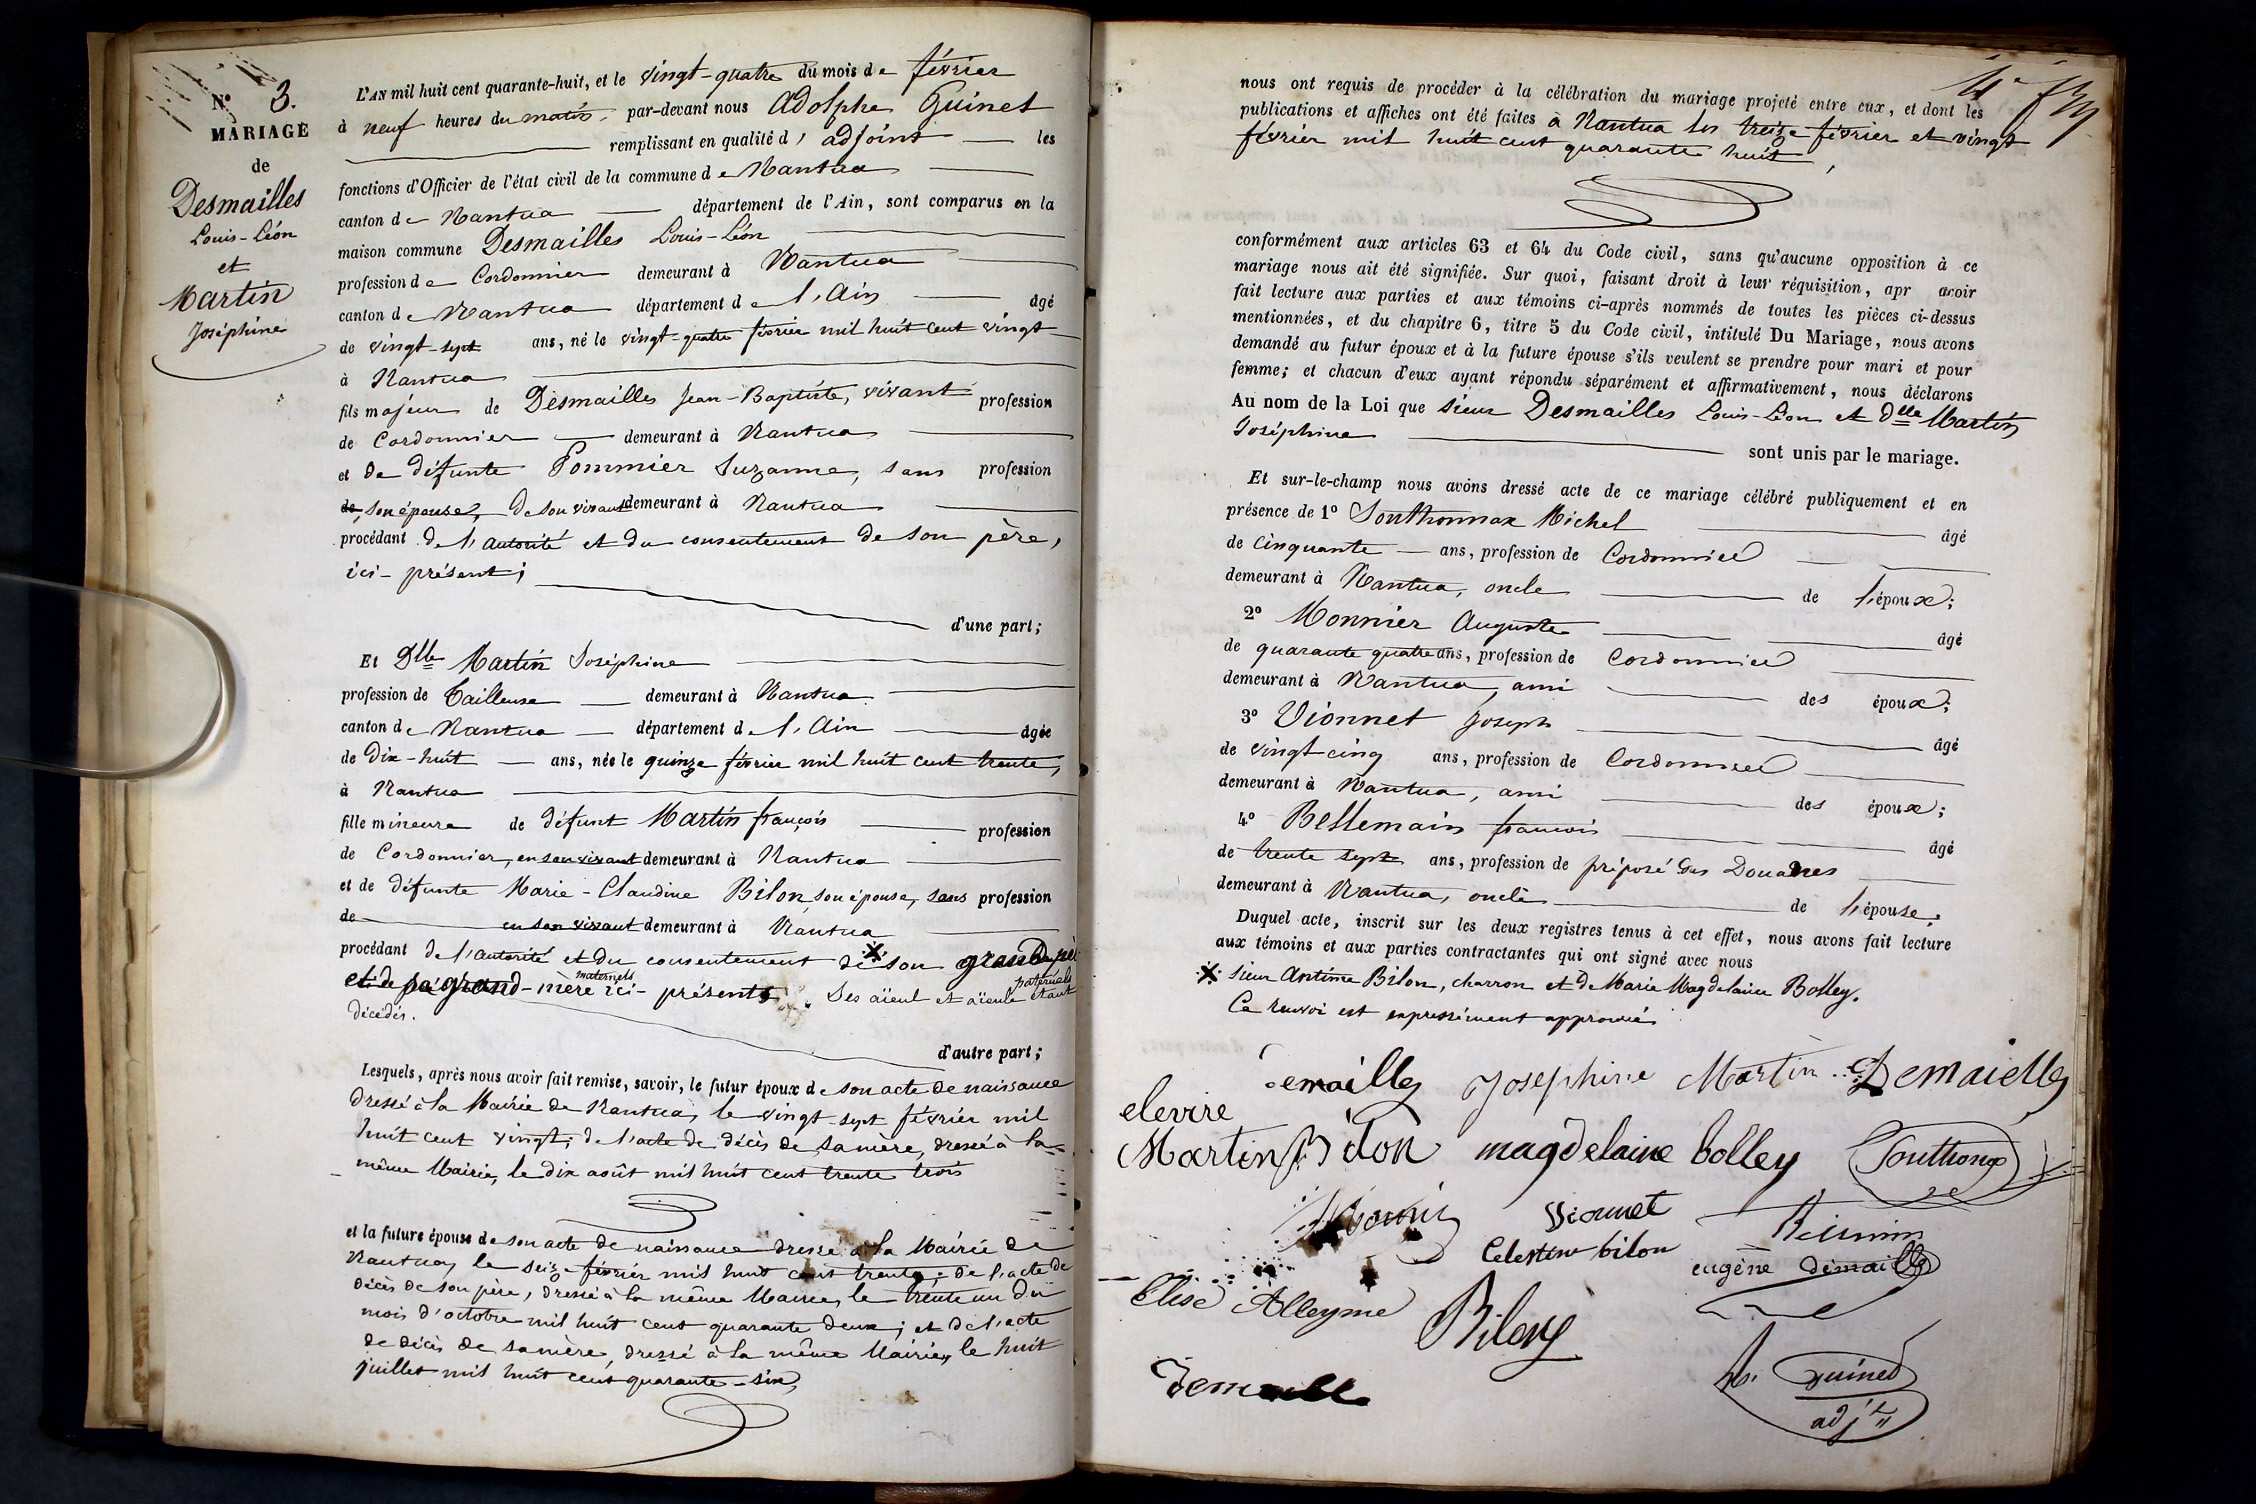 N° 3.
MARIAGE
de
Desmailles
Louis-Léon
et
Martin
Joséphine
L'AN mil huit cent quarante-huit, et le vingt-quatre du mois de février
à neuf heures du matin, par-devant nous Adolphe Guinet
remplissant en qualité d'adjoint les
fonctions d'Officier de l'état civil de la commune de Nantua
canton de Nantua département de l'Ain, sont comparus en la
maison commune Desmailles Louis-Léon
profession de Cordonnier demeurant à Nantua
canton de Nantua département de l'Ain âgé
de vingt-sept ans, né le vingt-quatre février mil huit cent vingt
à Nantua
fils majeur de Desmailles Jean-Baptiste, vivant profession
de Cordonnier demeurant à Nantua
et de défunte Pommier Suzanne, sans profession
de, son épouse, de son vivant demeurant à Nantua
procédant de l'autorité et du consentement de son père,
ici-présent;
d'une part;
Et Dlle Martin Joséphine
profession de Tailleuse demeurant à Nantua
canton de Nantua département de l'Ain âgée
de Dix-huit ans, née le quinze février mil huit cent trente,
à Nantua
fille mineure de défunt Martin françois profession
de Cordonnier, en son vivant demeurant à Nantua
et de défunte Marie-Claudine Bilon, son épouse, sans profession
de en son vivant demeurant à Nantua
procédant de l'autorité et du consentement de X son grand père
et de sa grand-mère maternels ici-présents. Ses aïeul et aïeule paternels étant
décédés.
d'autre part;
Lesquels, après nous avoir fait remise, savoir, le futur époux de son acte de naissance
dressé à la Mairie de Nantua, le vingt-sept février mil
huit cent vingt; de l'acte de décès de sa mère, dressé à la
même Mairie, le dix août mil huit cent trente trois
et la future épouse de son acte de naissance dressé à la Mairie de
Nantua, le seize février mil huit cent trente; de l'acte de
décès de son père, dressé à la même Mairie, le trente un du
mois d'octobre mil huit cent quarante deux; et de l'acte
de décès de sa mère, dressé à la même Mairie, le huit
juillet mil huit cent quarante-six,
nous ont requis de procéder à la célébration du mariage projeté entre eux, et dont les
publications et affiches ont été faites à Nantua les treize février et vingt
février mil huit cent quarante huit,
conformément aux articles 63 et 64 du Code civil, sans qu'aucune opposition à ce
mariage nous ait été signifiée. Sur quoi, faisant droit à leur réquisition, apr avoir
fait lecture aux parties et aux témoins ci-après nommés de toutes les pièces ci-dessus
mentionnées, et du chapitre 6, titre 5 du Code civil, intitulé Du Mariage, nous avons
demandé au futur époux et à la future épouse s'ils veulent se prendre pour mari et pour
femme; et chacun d'eux ayant répondu séparément et affirmativement, nous déclarons
Au nom de la Loi que sieur Desmailles Louis-Léon et Dlle Martin
Joséphine
sont unis par le mariage.
Et sur-le-champ nous avons dressé acte de ce mariage célébré publiquement et en
présence de 1° Southonnax Michel âgé
de cinquante ans, profession de Cordonnier
demeurant à Nantua, oncle de l'époux;
2° Monnier Auguste âgé
de quarante quatre ans, profession de Cordonnier
demeurant à Nantua, ami des époux;
3° Vionnet Joseph âgé
de vingt-cinq ans, profession de Cordonnier
demeurant à Nantua, ami des époux;
4° Bellemain francois âgé
de trente sept ans, profession de préposé des Douanes
demeurant à Nantua, oncle de l'épouse;
Duquel acte, inscrit sur les deux registres tenus à cet effet, nous avons fait lecture
aux témoins et aux parties contractantes qui ont signé avec nous
X Sieur Antime Bilon, charron et de Marie Magdelaine Bolley.
Ce renvoi est expressément approuvé
Demailles Joséphine Martin Demaielles
elevire
Martin Bilon magdelaine bolley Southonax
Vionnet
Celestine bilon
eugène demailles
Elise Alleyme
Bilon
Demaille
Guinet
adjt